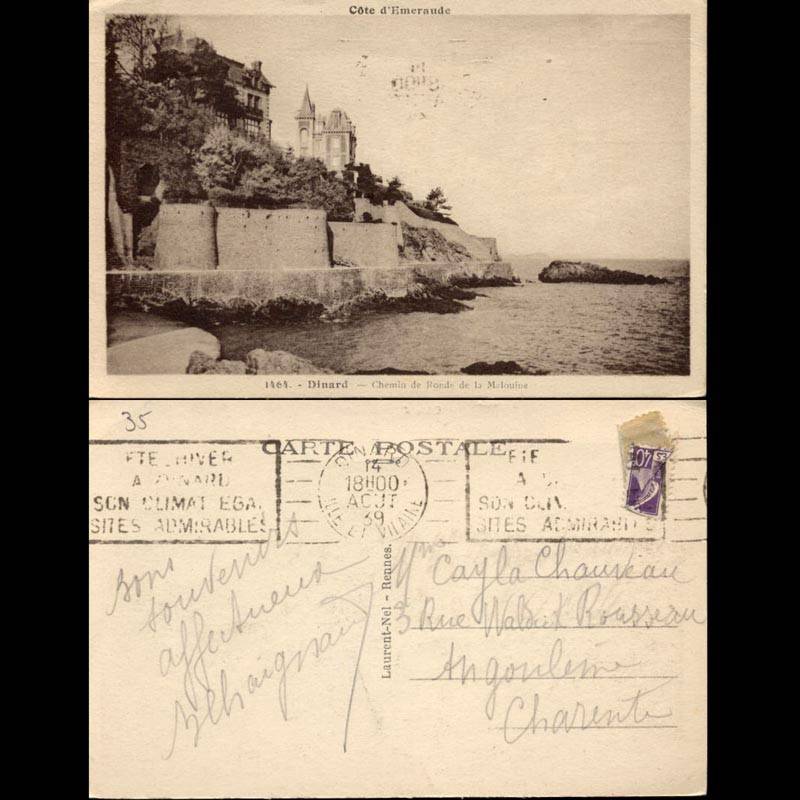 Côte d'Emeraude
1464. - Dinard — Chemin de Ronde de la Malouine
35
CARTE POSTALE
ETE HIVER
A DINARD
SON CLIMAT EGAL
SITES ADMIRABLES
DINARD
14
18H00
AOUT
39
ILLE ET VILAINE
ETE
A
SON CLIM
SITES ADMIRABLE
40
Laurent-Nel - Rennes.
Bons
souvenirs
affectueux
Mme Cayla Chauveau
3 Rue Waldeck Rousseau
Angoulême
Charente